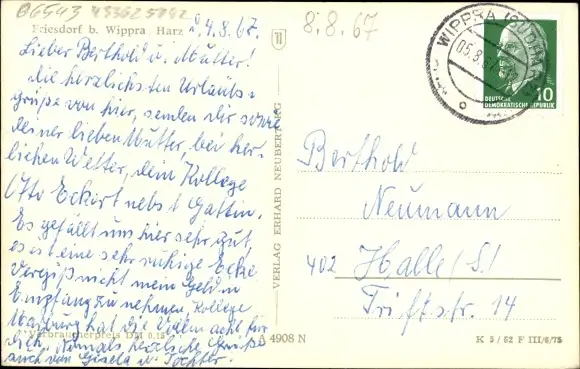 06543 453625742
Friesdorf b. Wippra Harz
d. 4.8.67.
8.8.67
Lieber Berthold u. Mutter!
die herzlichsten Urlaubs-
grüße von hier, senden dir sowie
deiner lieben Mutter, bei herr-
lichen Wetter, dein Kollege
Otto Eckirt nebst Gattin.
Es gefällt uns hier sehr gut,
es ist eine sehr ruhige Ecke
Vergiß nicht mein Geld in
Empfang zu nehmen, Kollege
hat die Vollmacht für
dich. Nochmals herzliche Grüße
auch von Gisela u. Tochter.
Verbraucherpreis DM 0,15
A 4908 N
VERLAG ERHARD NEUBERT KG
WIPPRA (SÜDHARZ)
05.8.67
10
DEUTSCHE
DEMOKRATISCHE REPUBLIK
Berthold
Neumann
402 Halle/S.
Triftstr. 14
K 5/62 F III/6/75